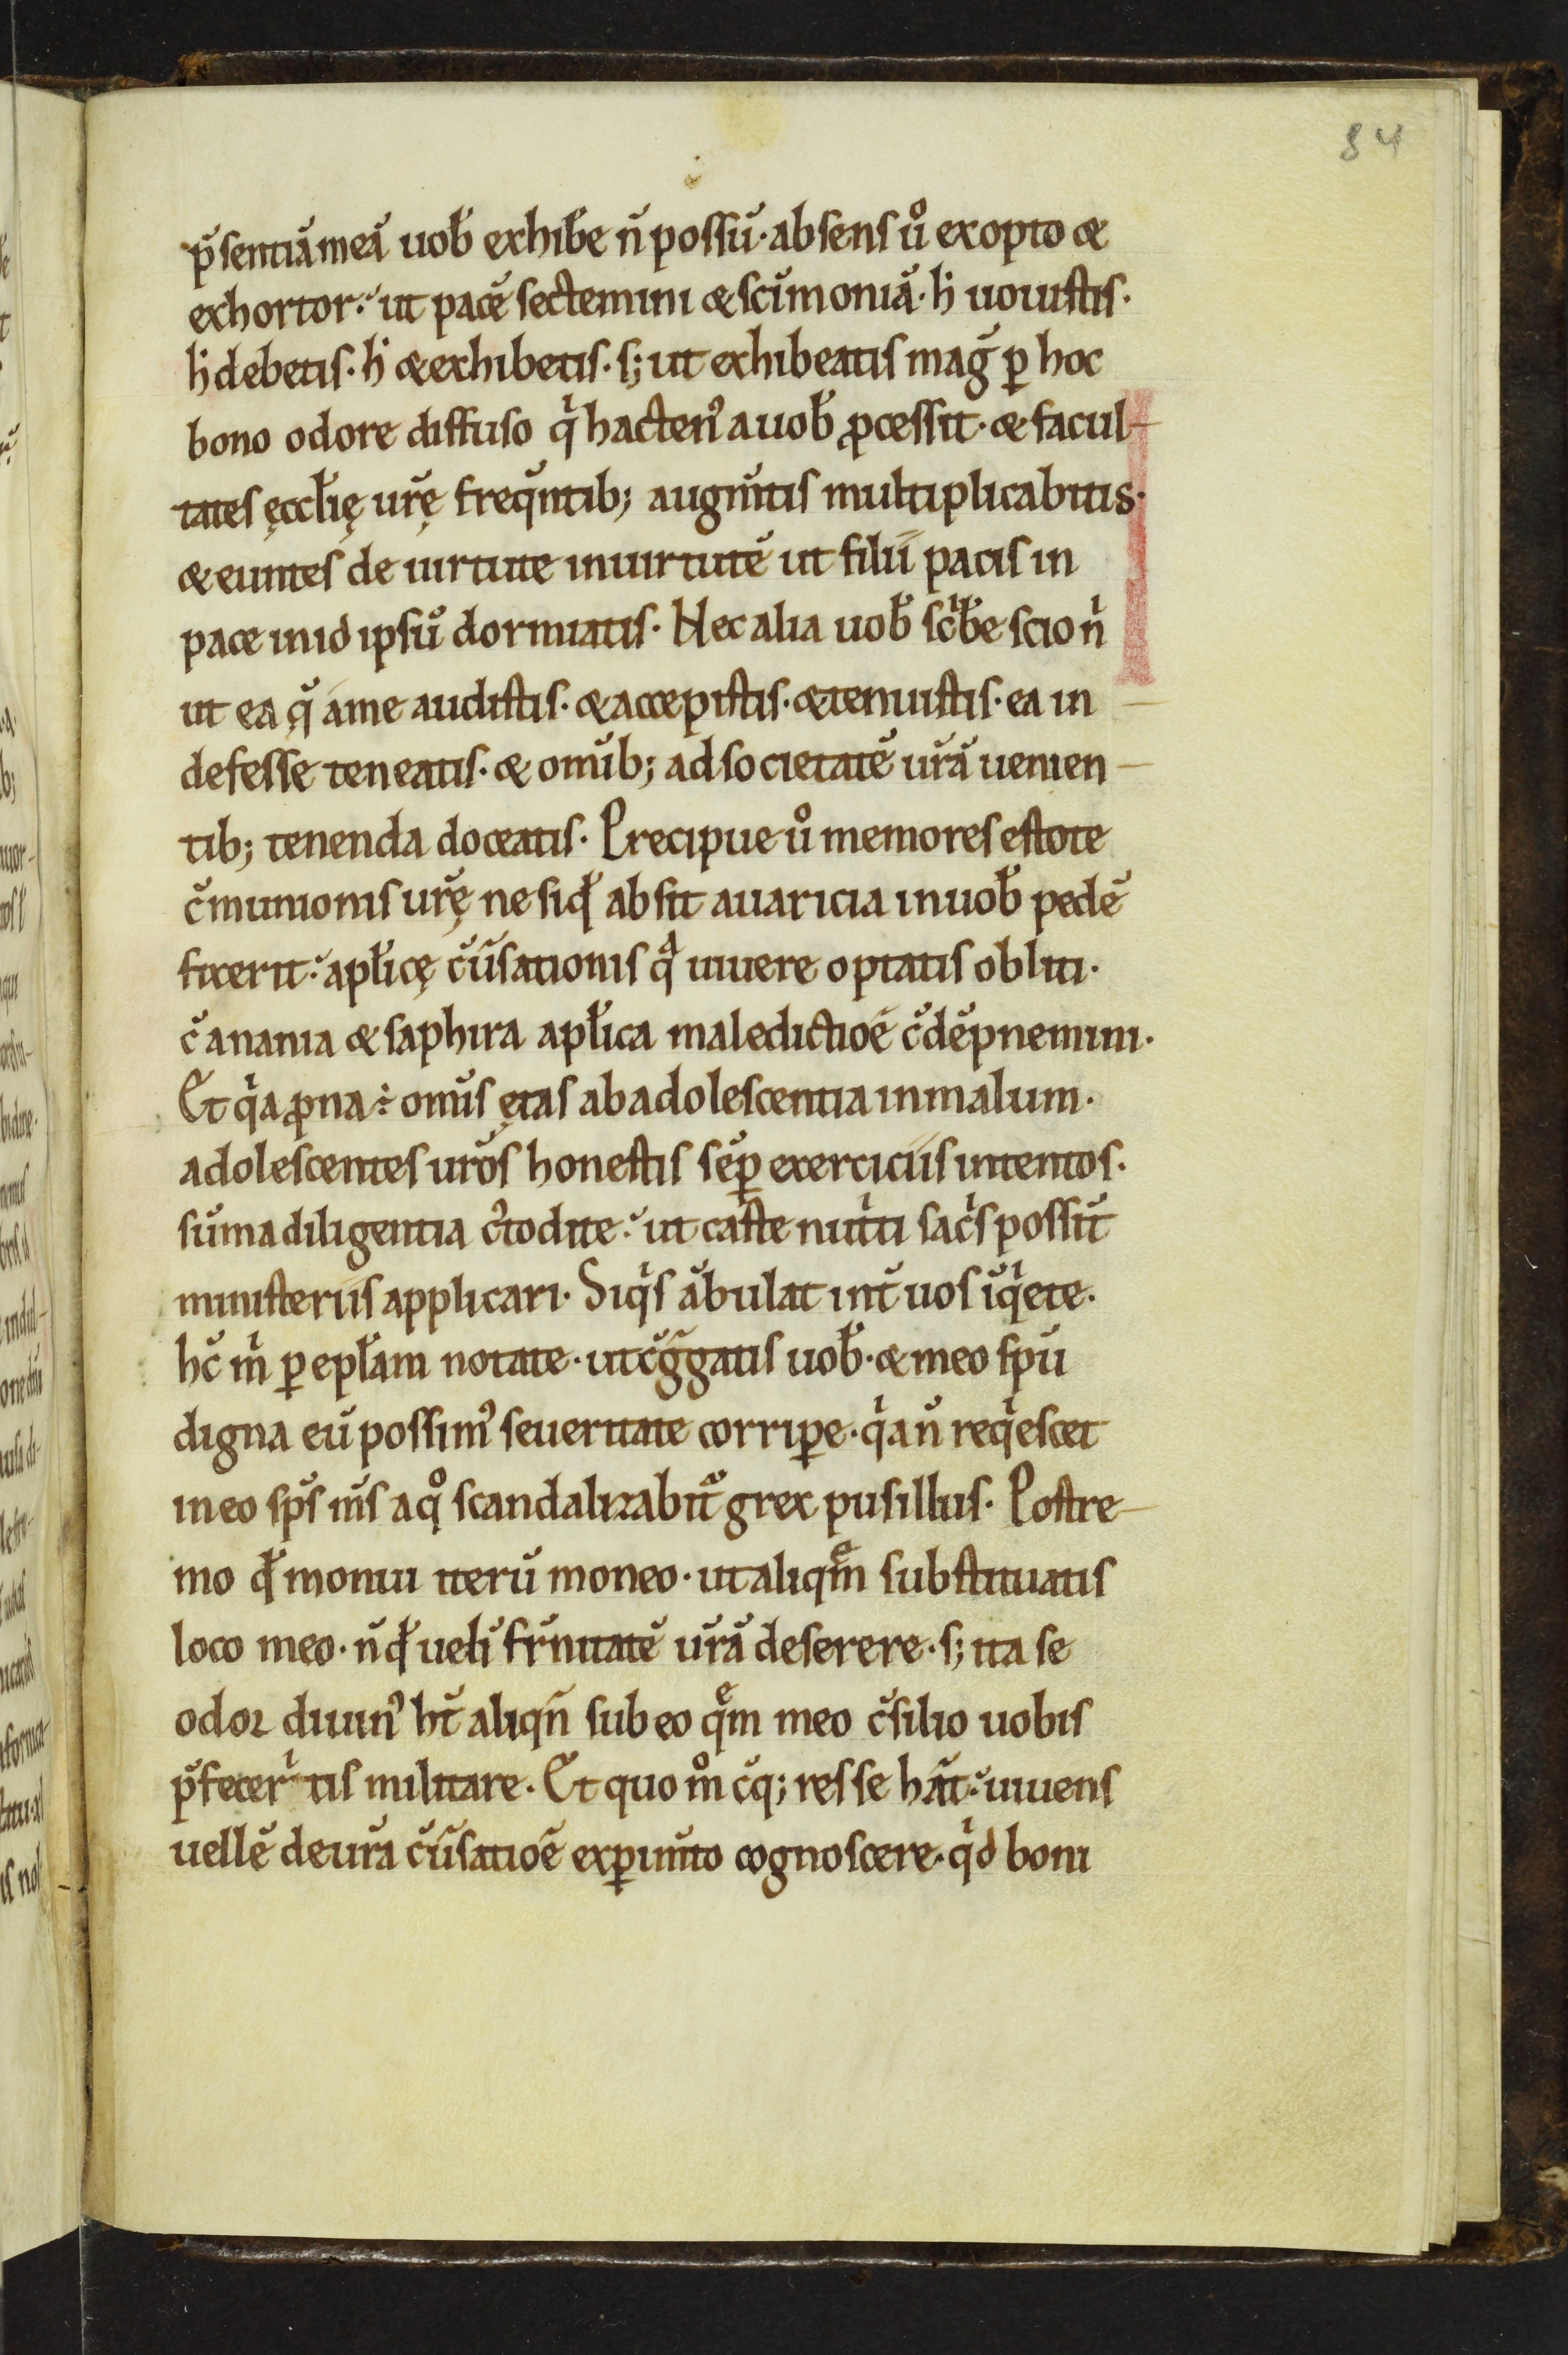 84
p̄sentiā meā uob̄ exhib̄e n̄ possū· absens ů exopto &
exhortor: ut pacē sectemini & scīmoniā· h̄ uouistis·
h̄ debetis· h̄ & exhibetis· s; ut exhibeatis maḡ ꝑ hoc
bono odore diffuso qⁱ hactenꝰ a uob̄ ꝓcessit· & facul-
tates ęcclīę ur̄ę freq̄ntib; augm̄tis multiplicabitis·
& euntes de uirtute in uirtutē ut filii pacis in
pace in id ipsů dormiatis· Nec alia uob̄ scⁱb̄e scio nⁱ
ut ea q̄ a me audistis· & accepistis· & tenuistis· ea in-
defesse teneatis· & omīb; ad societatē ur̄ā uenien-
tib; tenenda doceatis· Precipue ů memores estote
c̄munionis ur̄ę ne si qd̄ absit auaricia in uob̄ pedē
fixerit: apl̄icę c̄ūsationis qᵃ uiuere optatis obliti·
c̄ anania & saphira apl̄ica maledictiōe c̄dēpnemini·
Et qⁱa ꝓna ÷ omīs ętas ab adolescentia in malum·
adolescentes ur̄os honestis sēꝑ exerciciis intentos·
sūma diligentia cꝰtodite: ut caste nutⁱti sacⁱs possīt
ministeriis applicari· Si qⁱs ābulat int̄ uos iqⁱete·
hc̄ mⁱ ꝑ epl̄am notate· ut c̄g̅gatis uob̄· & meo spū
digna eū possimꝰ seueritate corriꝑe· qⁱa n̄ reqⁱescet
in eo sp̄s m̄s a qº scandalizabit̄ grex pusillus· Postre-
mo qd̄ monui iterū moneo· ut aliqᵉm substituatis
loco meo· n̄ qd̄ uelī fr̄nitatē ur̄ā deserere· s; ita se
odor diuinꝰ ht̄ aliqn̄ sub eo qᵉm meo c̄silio uobis
p̄fecerⁱtis militare· Et quo mº c̄q; res se hāt: uiuens
uellē de ur̄a c̄ūsatiōe exꝑim̄to cognoscere· qⁱd boni